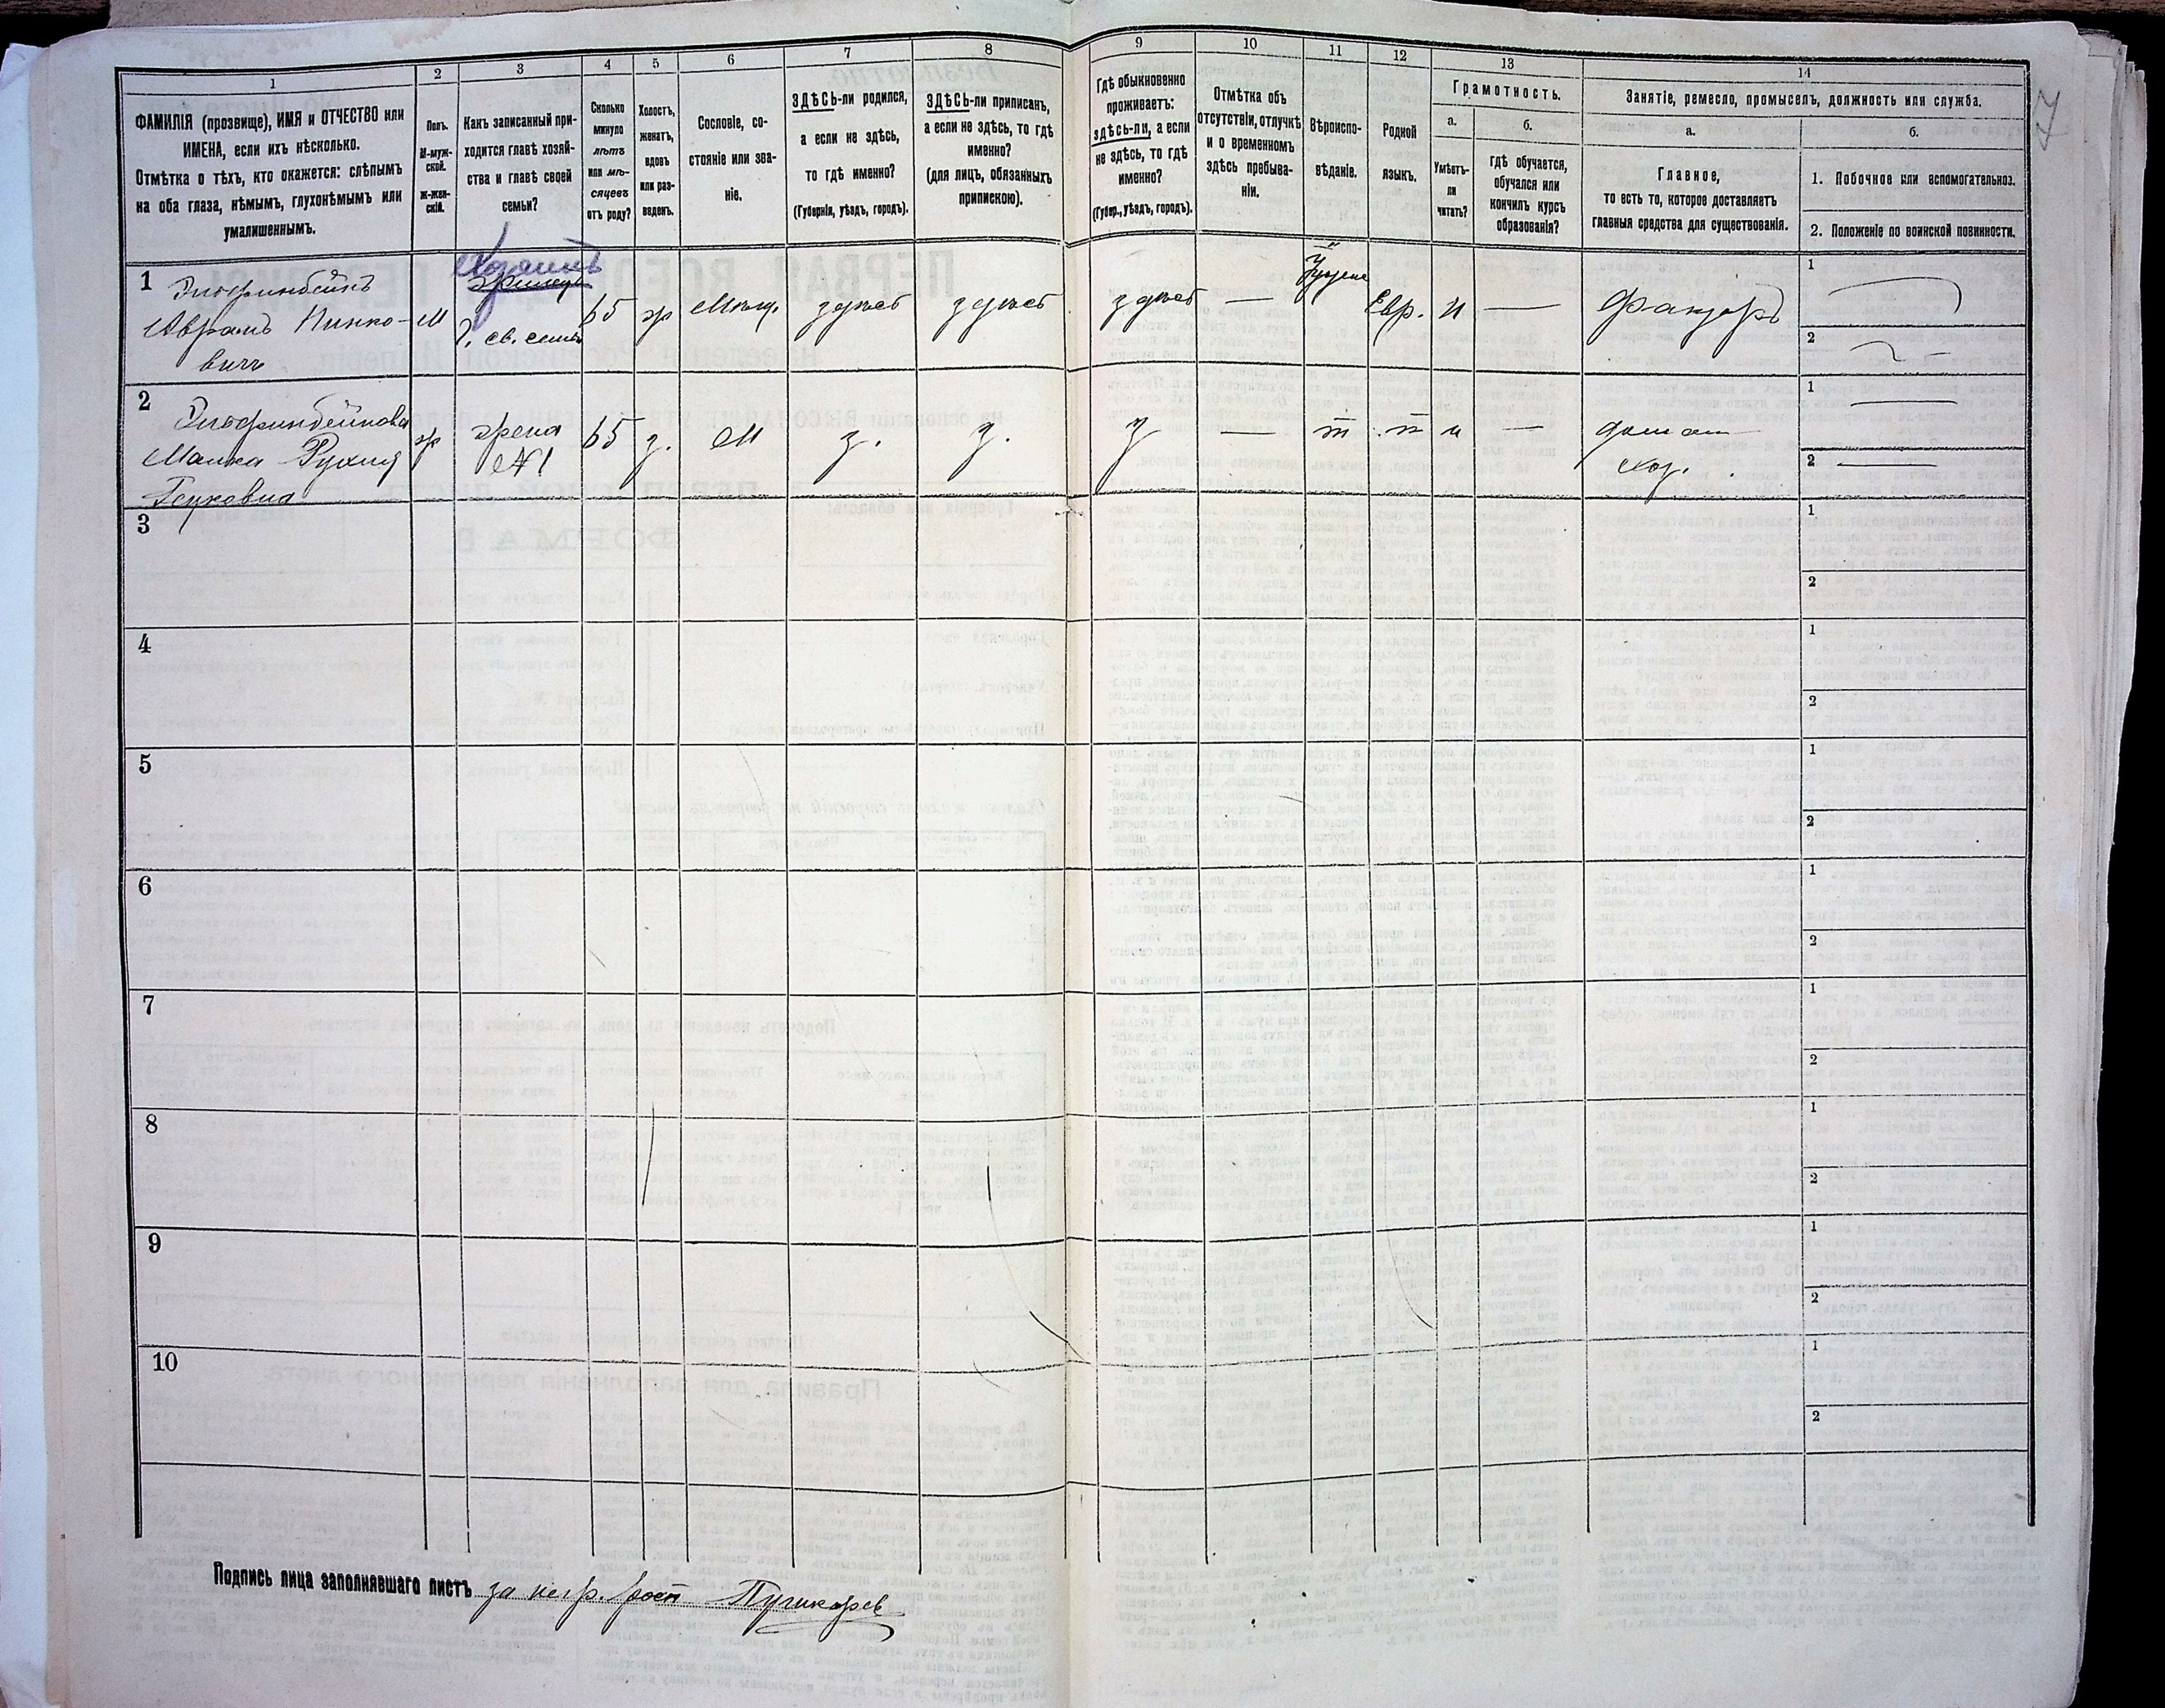 1
2
3
4
5
6
7
8
9
10
11
12
13
14
ФАМИЛІЯ (прозвище), ИМЯ и ОТЧЕСТВО или
ИМЕНА, если ихъ нѣсколько.
Отмѣтка о тѣхъ, кто окажется: слѣпымъ
на оба глаза, нѣмымъ, глухонѣмымъ или
умалишеннымъ.
Полъ.
М-муж-
ской.
Ж-жен-
скій.
Какъ записанный при-
ходится главѣ хозяй-
ства и главѣ своей
семьи?
Сколько
минуло
лѣтъ
или мѣ-
сяцевъ
отъ роду?
Холостъ,
женатъ,
вдовъ
или раз-
веденъ.
Сословіе, со-
стояніе или зва-
ніе.
ЗДѢСЬ-ли родился,
а если не здѣсь,
то гдѣ именно?
(Губернія, уѣздъ, городъ).
ЗДѢСЬ-ли приписанъ,
а если не здѣсь, то гдѣ
именно?
(для лицъ, обязанныхъ
припискою).
Гдѣ обыкновенно
проживаетъ:
здѣсь-ли, а если
не здѣсь, то гдѣ
именно?
(Губер., уѣздъ, городъ).
Отмѣтка объ
отсутствіи, отлучкѣ
и о временномъ
здѣсь пребыва-
ніи.
Вѣроиспо-
вѣданіе.
Родной
языкъ.
Грамотность.
а.
Умѣетъ-
ли
читать?
б.
гдѣ обучается,
обучался или
кончилъ курсъ
образованія?
Занятіе, ремесло, промыселъ, должность или служба.
а.
Главное,
то есть то, которое доставляетъ
главныя средства для существованія.
б.
1. Побочное или вспомогательное.
2. Положеніе по воинской повинности.
7
1
Аврамъ Пинко-
вичъ
М
Хозяинъ
г. св. семьи
65
ж
Мѣщ.
здѣсь
здѣсь
здѣсь
—
Іудей
Евр.
н
—
факторъ
1
2
2
Ельковна
ж
жена
№ 1
65
з.
М
з.
з.
з
—
т
п
н
—
домаш
хоз.
1
2
3
1
2
4
1
2
5
1
2
6
1
2
7
1
2
8
1
2
9
1
2
10
1
2
Подпись лица заполнявшаго листъ за негр. Пушкарев